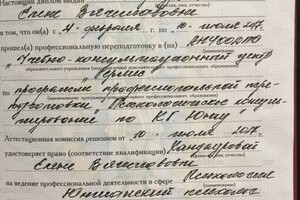 Настоящий диплом выдан
Елене Вячеславовне
(фамилия, имя, отчество)
в том, что он(а) с " февраля по 10 июля 2017г.
прошел(а) профессиональную переподготовку в (на) АНЧООДПО
"Учебно-консультационный центр
(образовательного учреждения
"Гермес"
по программе профессиональной пере-
подготовки "Психологическое консуль-
тирование по К.Г. Юнгу"
Аттестационная комиссия решением от 10 июля 2017г.
удостоверяет право (соответствие квалификации)
Елене Вячеславовне
(фамилия, имя, отчество)
на ведение профессиональной деятельности в сфере Психология
Юнгианский психолог